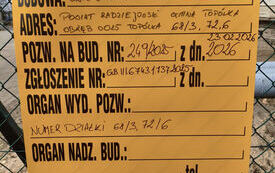 BUDOWA:
ADRES: POWIAT RADZIEJOWSKI GMINA TOPÓLKA
OBRĘB 0025 TOPÓLKA 68/3, 72/6
23.02.2026
POZW. NA BUD. NR: 249/2025 z dn. 2026
ZGŁOSZENIE NR: z dn.
ORGAN WYD. POZW.:
NUMER DZIAŁKI 68/3, 72/6
ORGAN NADZ. BUD.:
tel.